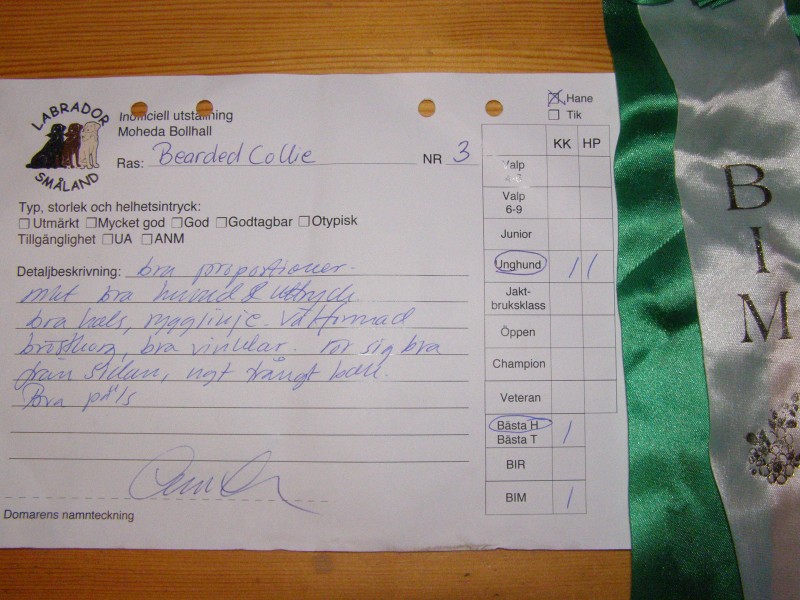 LABRADOR
SMÅLAND
Inofficiell utställning
Moheda Bollhall
Ras: Bearded Collie NR 3
Hane
Tik
KK HP
Typ, storlek och helhetsintryck:
Utmärkt Mycket god God Godtagbar Otypisk
Tillgänglighet UA ANM
Detaljbeskrivning: bra proportioner.
mkt bra huvud & uttryck
bra hals, rygglinje. Välformad
bröstkorg, bra vinklar. rör sig bra
från sidan, ngt trångt bak.
Bra päls
Domarens namnteckning
Valp
Valp
6-9
Junior
Unghund 1 1
Jakt-
bruksklass
Öppen
Champion
Veteran
Bästa H 1
Bästa T
BIR
BIM 1
B
I
M